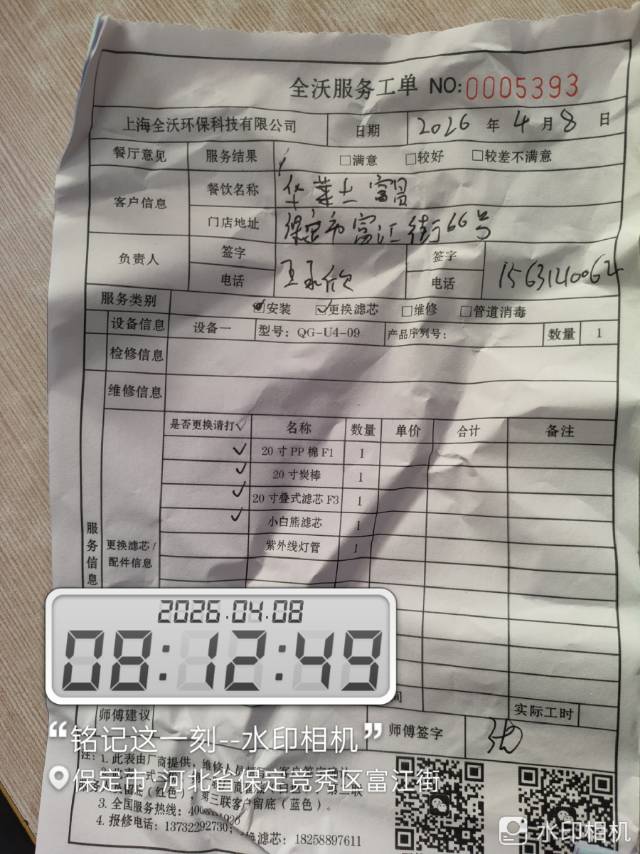 全沃服务工单 NO:0005393
上海全沃环保科技有限公司 日期 2026 年 4 月 8 日
餐厅意见 服务结果 ✓ □满意 □较好 □较差不满意
客户信息 餐饮名称 华莱士富昌
门店地址 保定市富江街66号
负责人 签字 签字
电话 电话
服务类别 ☑安装 ☑更换滤芯 □维修 □管道消毒
设备信息 设备一 型号: QG-U4-09 产品序列号: 数量 1
检修信息
维修信息
是否更换请打✓ 名称 数量 单价 合计 备注
✓ 20寸PP棉F1 1
✓ 20寸炭棒 1
✓ 20寸叠式滤芯F3 1
✓ 小白熊滤芯 1
紫外线灯管 1
服务信息
更换滤芯/
配件信息
2026.04.08
08:12:49
实际工时
师傅建议 师傅签字
“铭记这一刻--水印相机”
保定市·河北省保定竞秀区富江街
注: 1. 此表由厂商提供, 维修人
3. 全国服务热线:
4. 报修电话: 13732292730; 换滤芯: 18258897611
水印相机